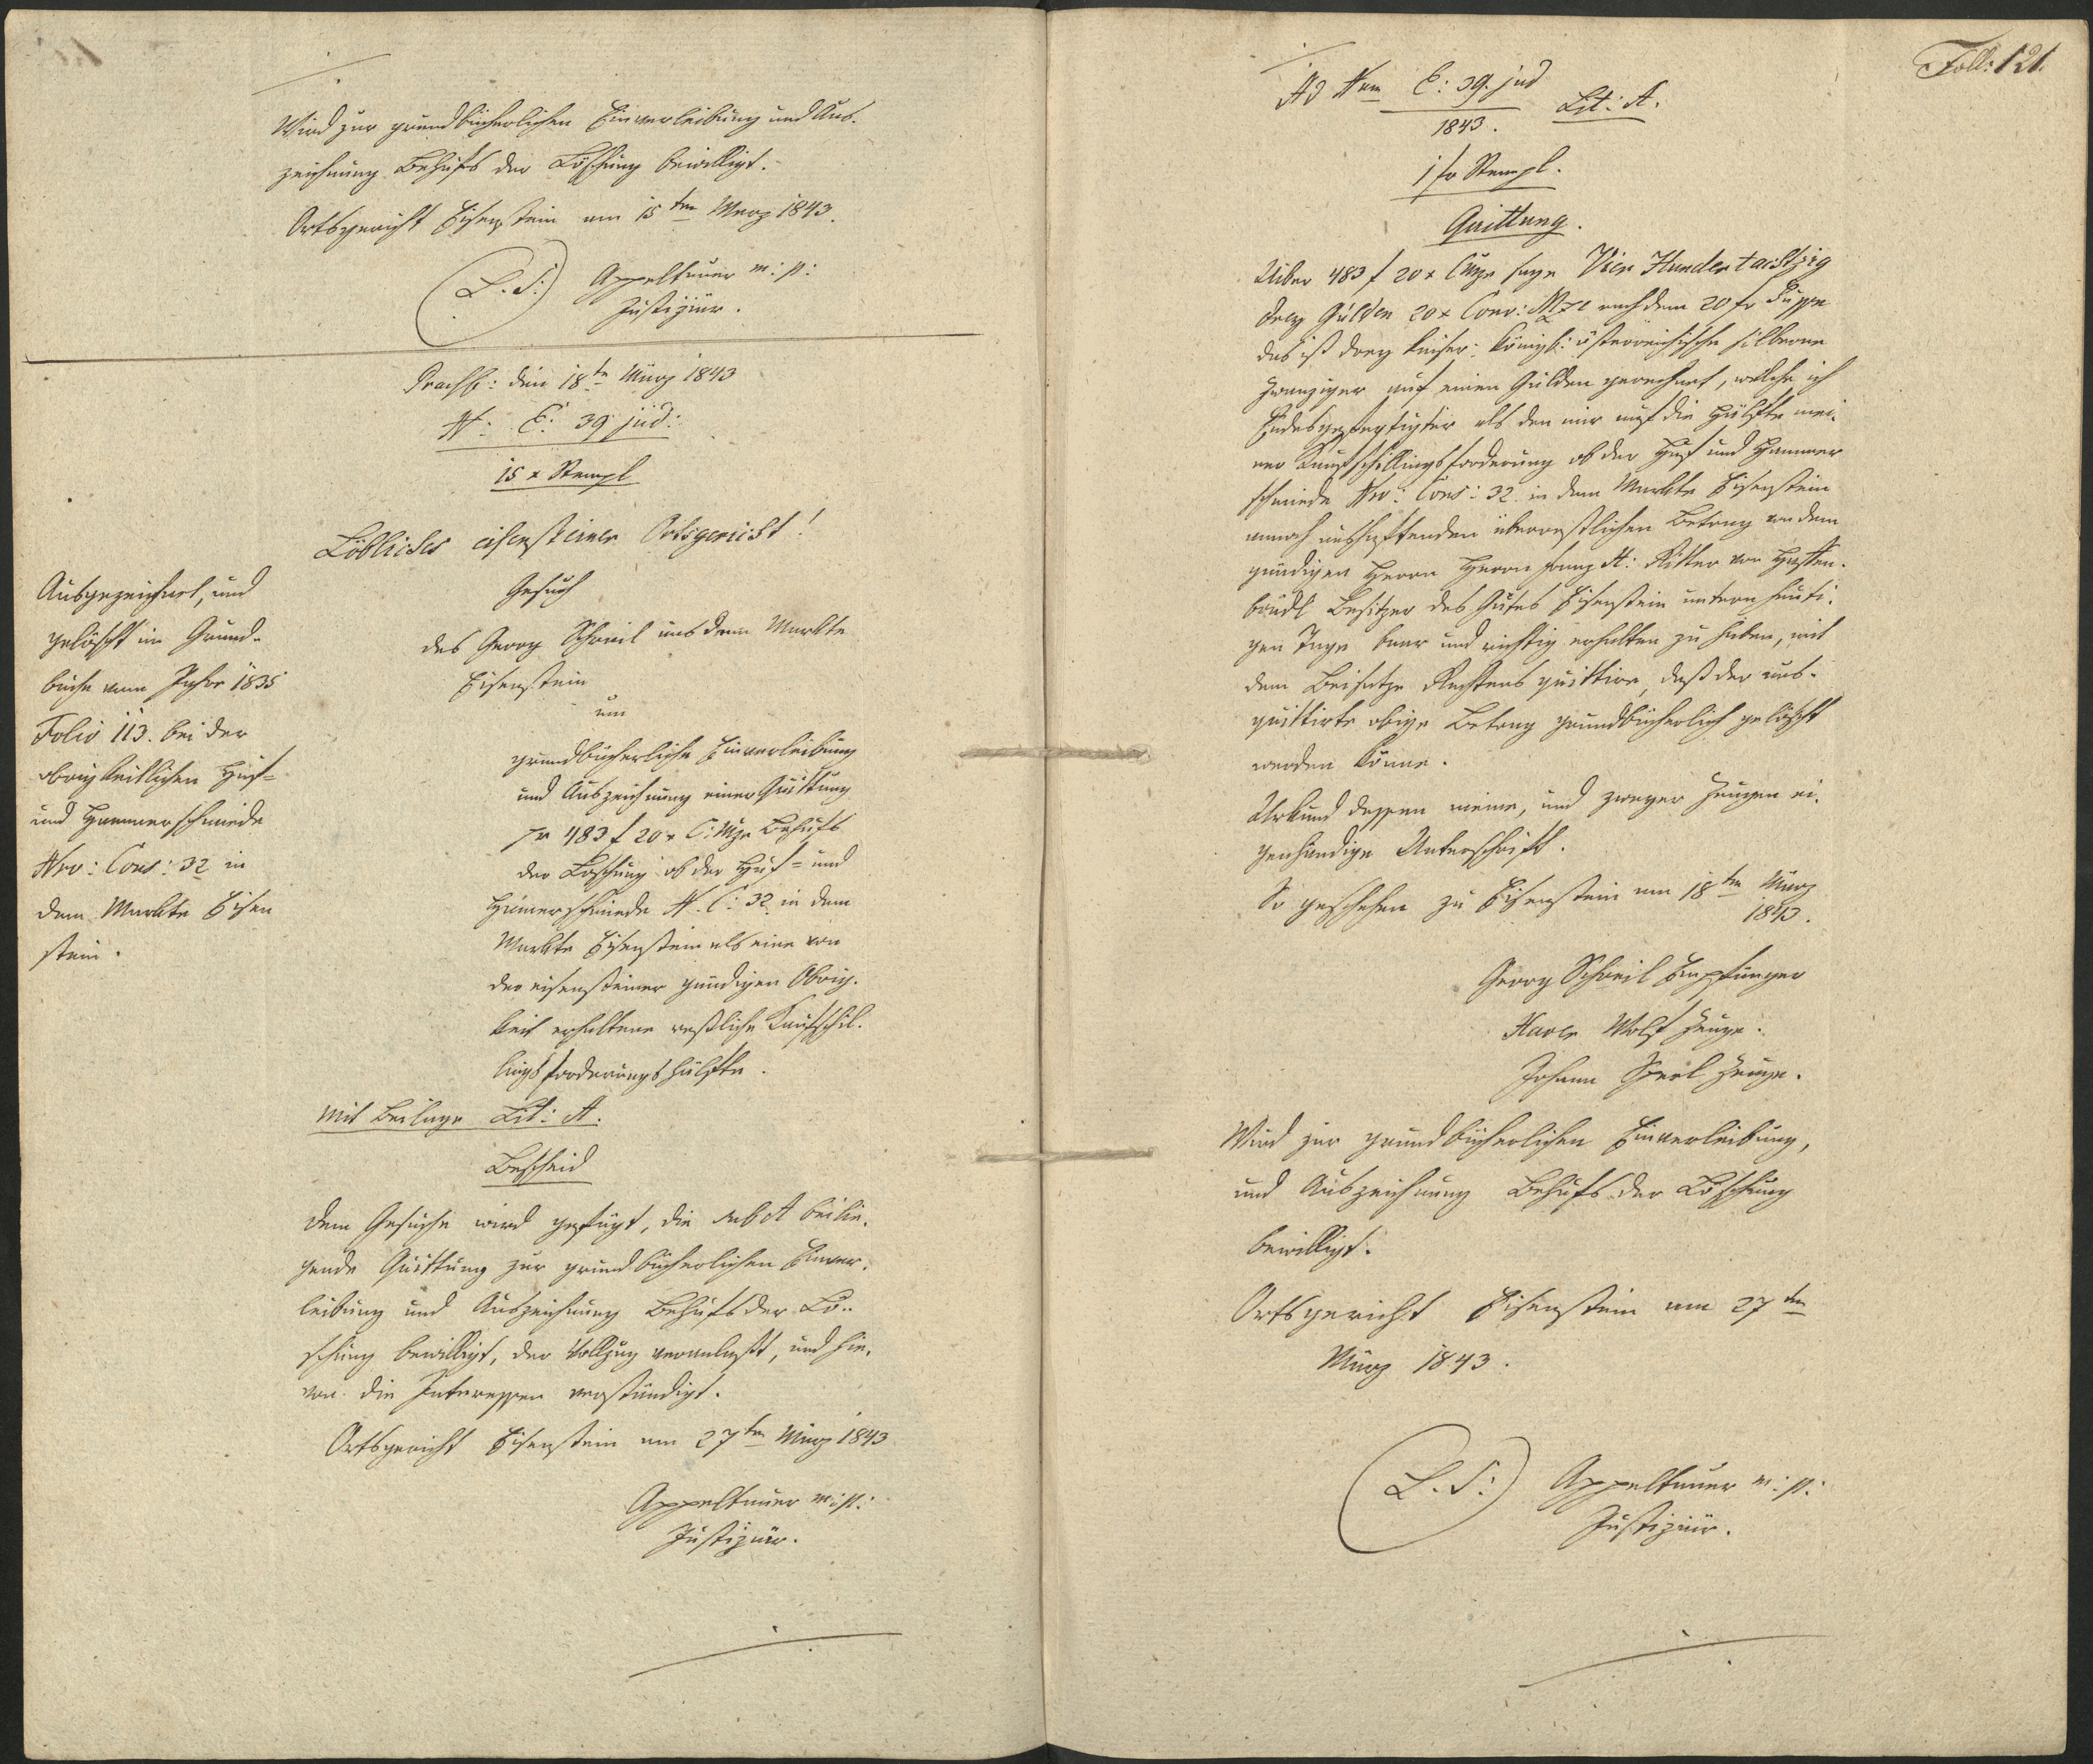 Wird zur grundbücherlichen Einverleibung und Aus-
zeichnung Behufs der Löschung bewilligt.
Ortsgericht Eisenstein am 15ten Merz 1843.
(L. S.) Appeltauer m: p:
Justiziär.
den 18te März 1843
N: E: 39 jud:
15 x Stempl
Löbliches eisensteiner Ortsgericht!
Gesuch
des Georg Schreil aus dem Markte
Eisenstein
um
grundbücherliche Einverleibung
und Auszeichnung einer Quittung
pr 483 f 20 x C: Mze Behufs
der Löschung ob der Huf= und
Hamerschmiede N. C: 32 in dem
Markte Eisenstein als eine von
der eisensteiner gnädigen Obrig-
keit erhaltene restliche Kaufschil-
lingsforderungs hälfte.
Mit Beilage Lit: A:
Ausgezeichnet, und
gelöscht im Grund-
buche vom Jahre 1835
Folio 113. bei der
obrigkeitlichen Huf=
und Hammerschmiede
Nro: Cons: 32 in
dem Markte Eisen
stein.
Bescheid
Dem Gesuche wird gefügt, die sub A beilie-
gende Quittung zur grundbücherlichen Einver-
leibung und Auszeichnung Behufs der Lö-
schung bewilligt, der Vollzug veranlaßt, und hie-
von die Interessen verständigt.
Ortsgericht Eisenstein am 27ten März 1843
Appeltauer m: p:
Justiziär.
Foll: 121.
Ad Num E: 39. jud Lit: A.
1843.
1 fr Stempl.
Quittung.
Über 483 f 20 x CMze sage Vier Hundert achtzig
drey Gulden 20 x Conv: Mze nach dem 20 fr Fuße
das ist drey kaiser: königl: österreichische silberne
Zwanziger auf einen Gulden gerechnet, welche ich
Endesgefertigter als den mir auf die Hälfte mei-
ner Kaufschillingsforderung ob der Huf und Hammer
schmiede Nro: Cons: 32. in dem Markte Eisenstein
annoch aushaftenden überrestlichen Betrag von dem
gnädigen Herrn Herrn Franz A: Ritter von Hafen-
brädl Besitzer des Gutes Eisenstein untern heuti-
gen Tage baar und richtig erhalten zu haben, mit
dem Beisatze Rechtens quittire, daß der aus-
quittirte obige Betrag grundbücherlich gelöscht
werden könne.
Urkund dessen meine, und zweyer Zeugen ei-
genhändige Unterschrift.
So geschehen zu Eisenstein am 18ten März
1843.
Georg Schreil Empfänger
Wolf Zeuge.
Johann Zeuge.
Wird zur grundbücherlichen Einverleibung,
und Auszeichnung Behufs der Löschung
bewilligt.
Ortsgericht Eisenstein am 27ten
März 1843.
(L. S.) Appeltauer m: p:
Justiziär.